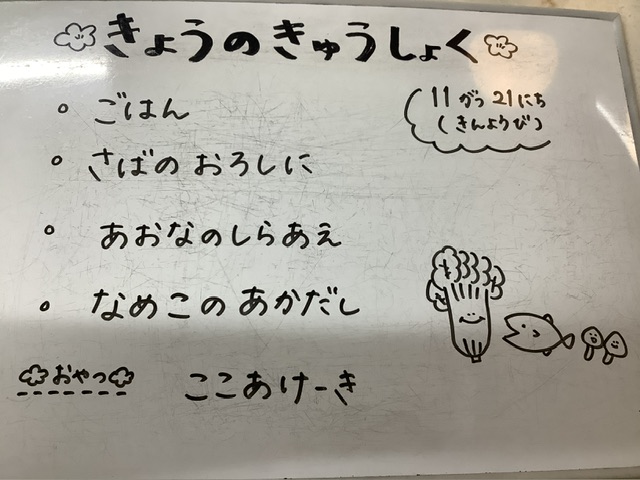 きょうのきゅうしょく
11がつ21にち
(きんようび)
。ごはん
。さばのおろしに
。あおなのしらあえ
。なめこのあかだし
おやつ
ここあけーき